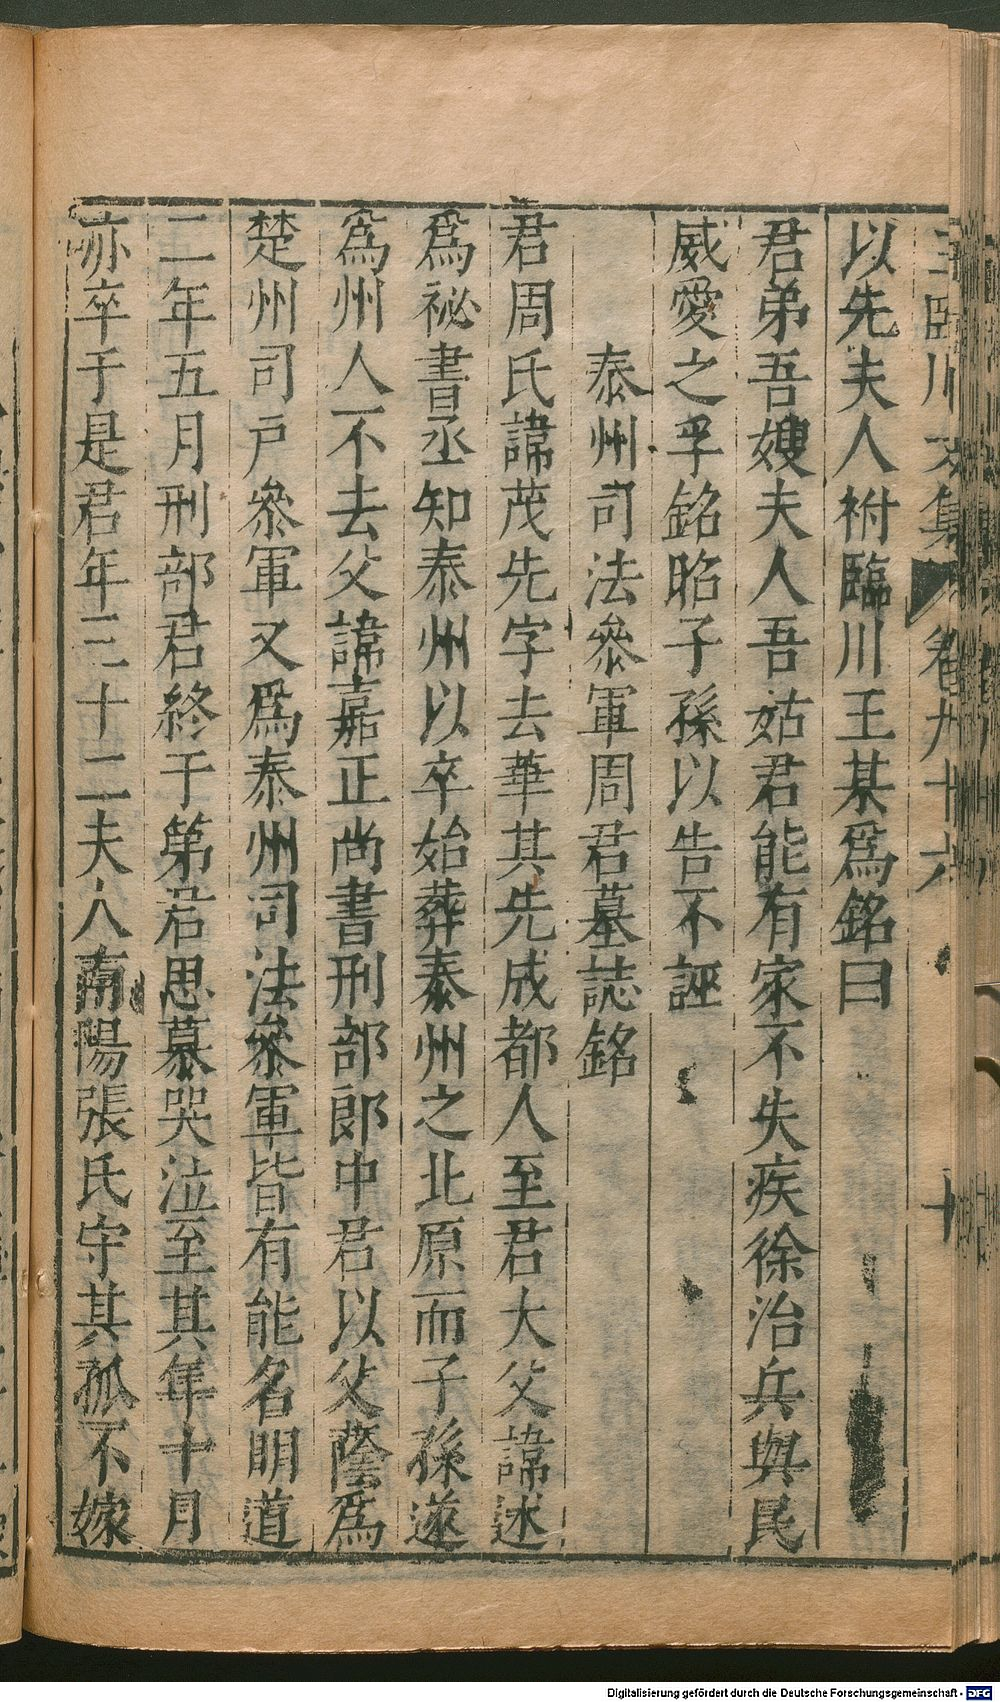 王臨川文集 卷九十六 十
以先夫人祔臨川王某爲銘曰
君弟吾嫂夫人吾姑君能有家不失疾徐治兵與民
威愛之孚銘昭子孫以告不誣
泰州司法參軍周君墓誌銘
君周氏諱茂先字去華其先成都人至君大父諱述
爲祕書丞知泰州以卒始葬泰州之北原而子孫遂
爲州人不去父諱嘉正尚書刑部郎中君以父蔭爲
楚州司戶參軍又爲泰州司法參軍皆有能名明道
二年五月刑部君終于第君思慕哭泣至其年十月
亦卒于是君年三十二夫人南陽張氏守其孤不嫁
Digitalisierung gefördert durch die Deutsche Forschungsgemeinschaft - DFG